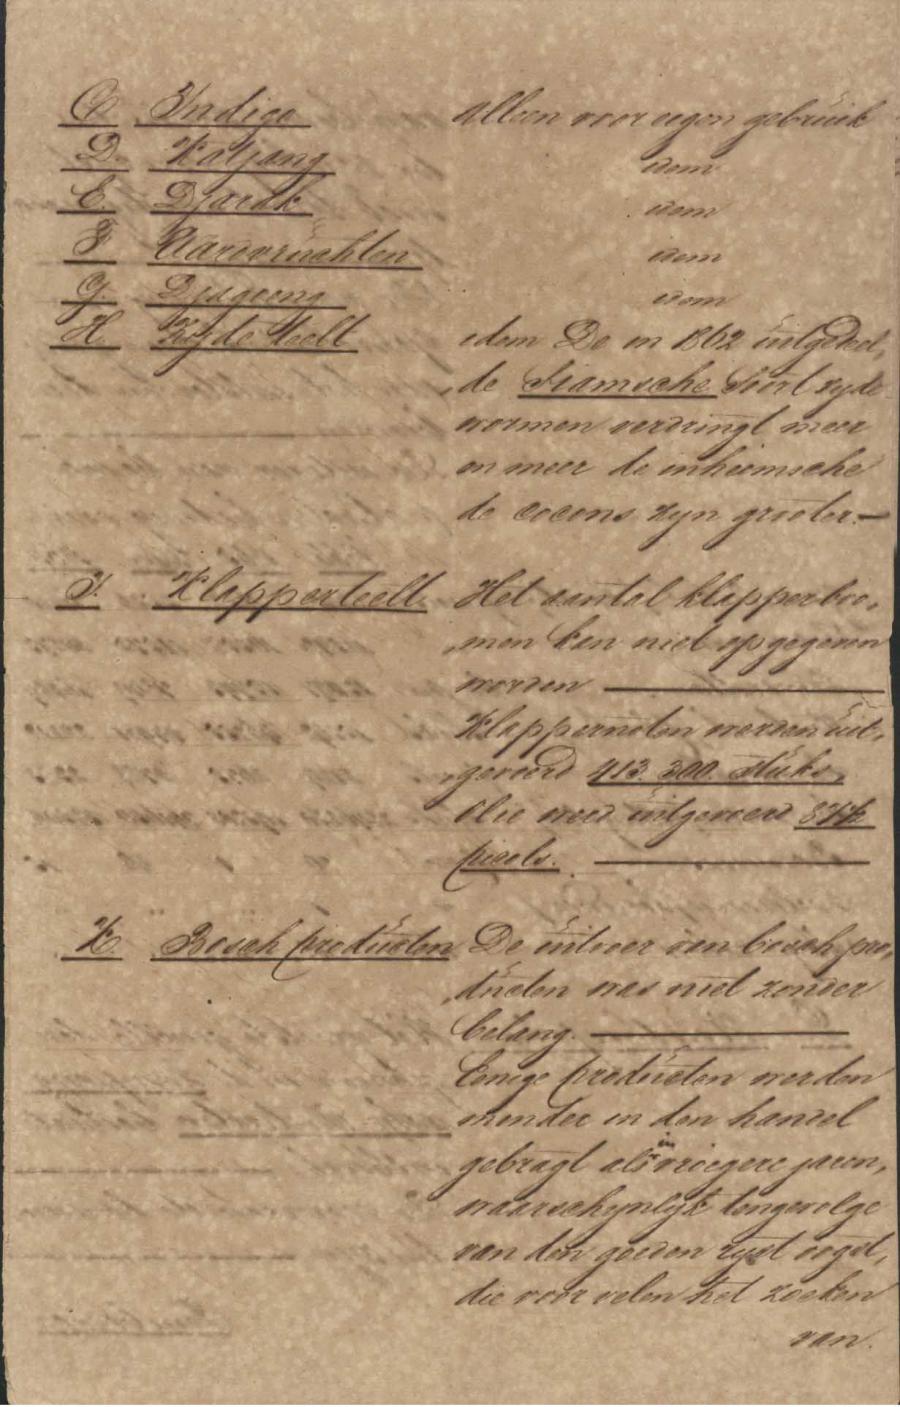 C. Indigo Alleen voor eigen gebruik
D. Katjang idem
E. Djarak idem
F Aardvruchten idem
G. Djagoeng idem
H. Zijde teelt idem De in 1862 uitgedeel,
de Siamsche soort zijde
wormen verdringt meer
en meer de inheemsche
de cocons zijn grooter.—
I. Klapperteelt Het aantal klapperboo,
men kan niet opgegeven
worden
Klappernoten werden uit,
gevoerd 413.300 stuks,
Olie werd uitgevoerd
picols.
K. Bosch producten De uitvoer van bosch pro,
ducten was niet zonder
belang.
Eenige producten werden
minder in den handel
gebragt als in vroegere jaren,
waarschijnlijk tengevolge
van den goeden rijst oogst,
die voor velen het zoeken
van.